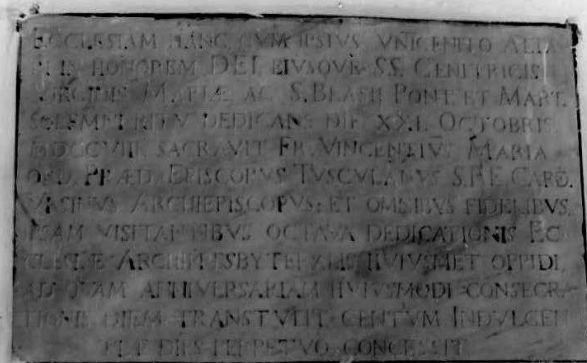 ECCLESIAM HANC CVM IPSIVS VNICENTI O ALTA
RI IN HONOREM DEI, EIVSQVE SS. GENITRICIS
VIRGINIS MARIÆ AC S. BLASII PONT. ET MART.
SOLEMNI RITV DEDICANS DIE XXI. OCTOBRIS
MDCCVIII. SACRAVIT FR. VINCENTIVS MARIA
ORD. PRÆD. EPISCOPVS TVSCVLANVS S.R.E. CARD.
VRSINVS ARCHIEPISCOPVS: ET OMNIBVS FIDELIBVS
EAM VISITANTIBVS OCTAVA DEDICATIONIS EC
CLESIÆ ARCHIPRESBYTERALIS HVIVSMET OPPIDI,
AD QVAM ANNIVERSARIAM HVIVSMODI CONSECRA
TIONIS DIEM TRANSTVLIT CENTVM INDVLGEN
TIÆ DIES PERPETVO CONCESSIT